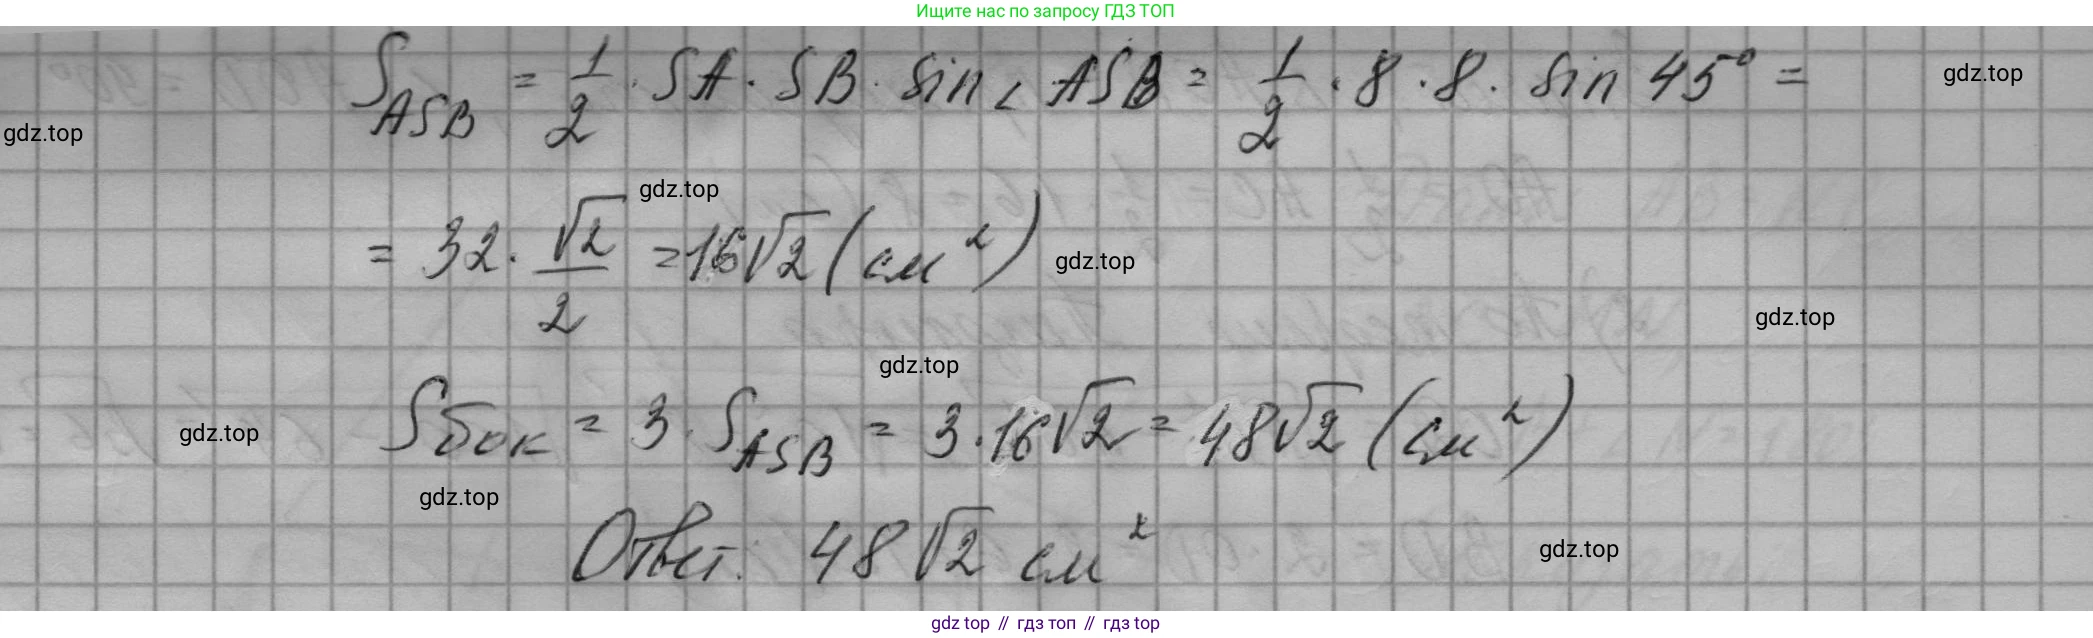 Ищите нас по запросу ГДЗ ТОП
S_ASB = 1/2 · SA · SB · sin ∠ ASB = 1/2 · 8 · 8 · sin 45° =
gdz.top
gdz.top
= 32 · √2/2 = 16√2 (см²)
gdz.top
gdz.top
gdz.top
gdz.top
Sбок = 3 · S_ASB = 3 · 16√2 = 48√2 (см²)
gdz.top
gdz.top
Ответ: 48√2 см²
gdz.top
gdz top // гдз топ // гдз top